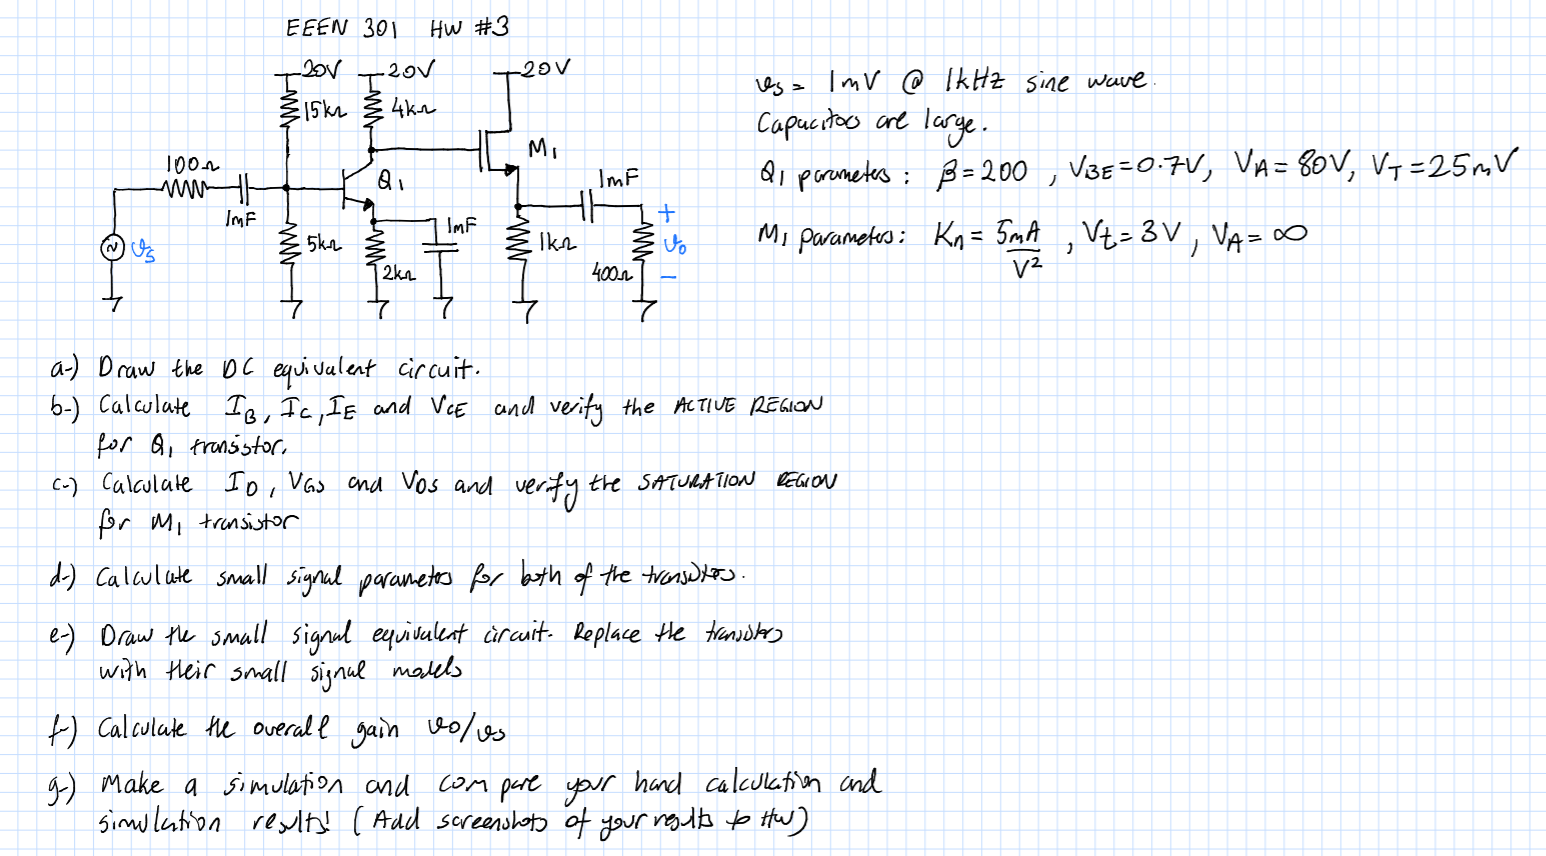 EEEN 301 HW #3
20V 20V 20V
15kΩ 4kΩ
M₁
100Ω
Q₁ 1mF
1mF 1mF +
vs 5kΩ 1kΩ vo
2kΩ 400Ω -
vs = 1mV @ 1kHz sine wave.
Capacitors are large.
Q₁ parameters : β=200 , VBE=0.7V, VA=80V, VT=25mV
M₁ parameters: Kn = 5mA/V² , Vt=3V , VA=∞
a-) Draw the DC equivalent circuit.
b-) Calculate IB, IC, IE and VCE and verify the ACTIVE REGION
for Q₁ transistor.
c-) Calculate ID, VGS and VDS and verify the SATURATION REGION
for M₁ transistor
d-) Calculate small signal parameters for both of the transistors.
e-) Draw the small signal equivalent circuit. Replace the transistors
with their small signal models
f-) Calculate the overall gain vo/vs
g-) Make a simulation and compare your hand calculation and
simulation results! (Add screenshots of your results to HW)